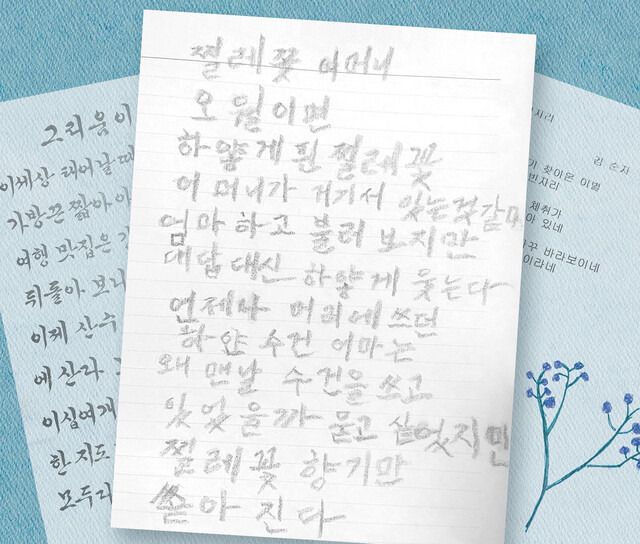 그리움이
이세상 태어날 때
가방끈 짧아
여행 맛집은
뒤돌아 보니
이제 산수
에 산라
이십여개
한지도
찔레꽃 어머니
오월이면
하얗게 핀 찔레꽃
어머니가 거기서 있는것 같아
엄마하고 불러 보지만
대답대신 하얗게 웃는다
언제나 머리에 쓰던
하얀 수건 어마는
왜 맨날 수건을 쓰고
있었을까 묻고 싶였지만
찔레꽃 향기만
쏟아 진다
자리
김 순자
찾아온 이별
빈자리
체취가
아 있네
꾸 바라보이네
이라네